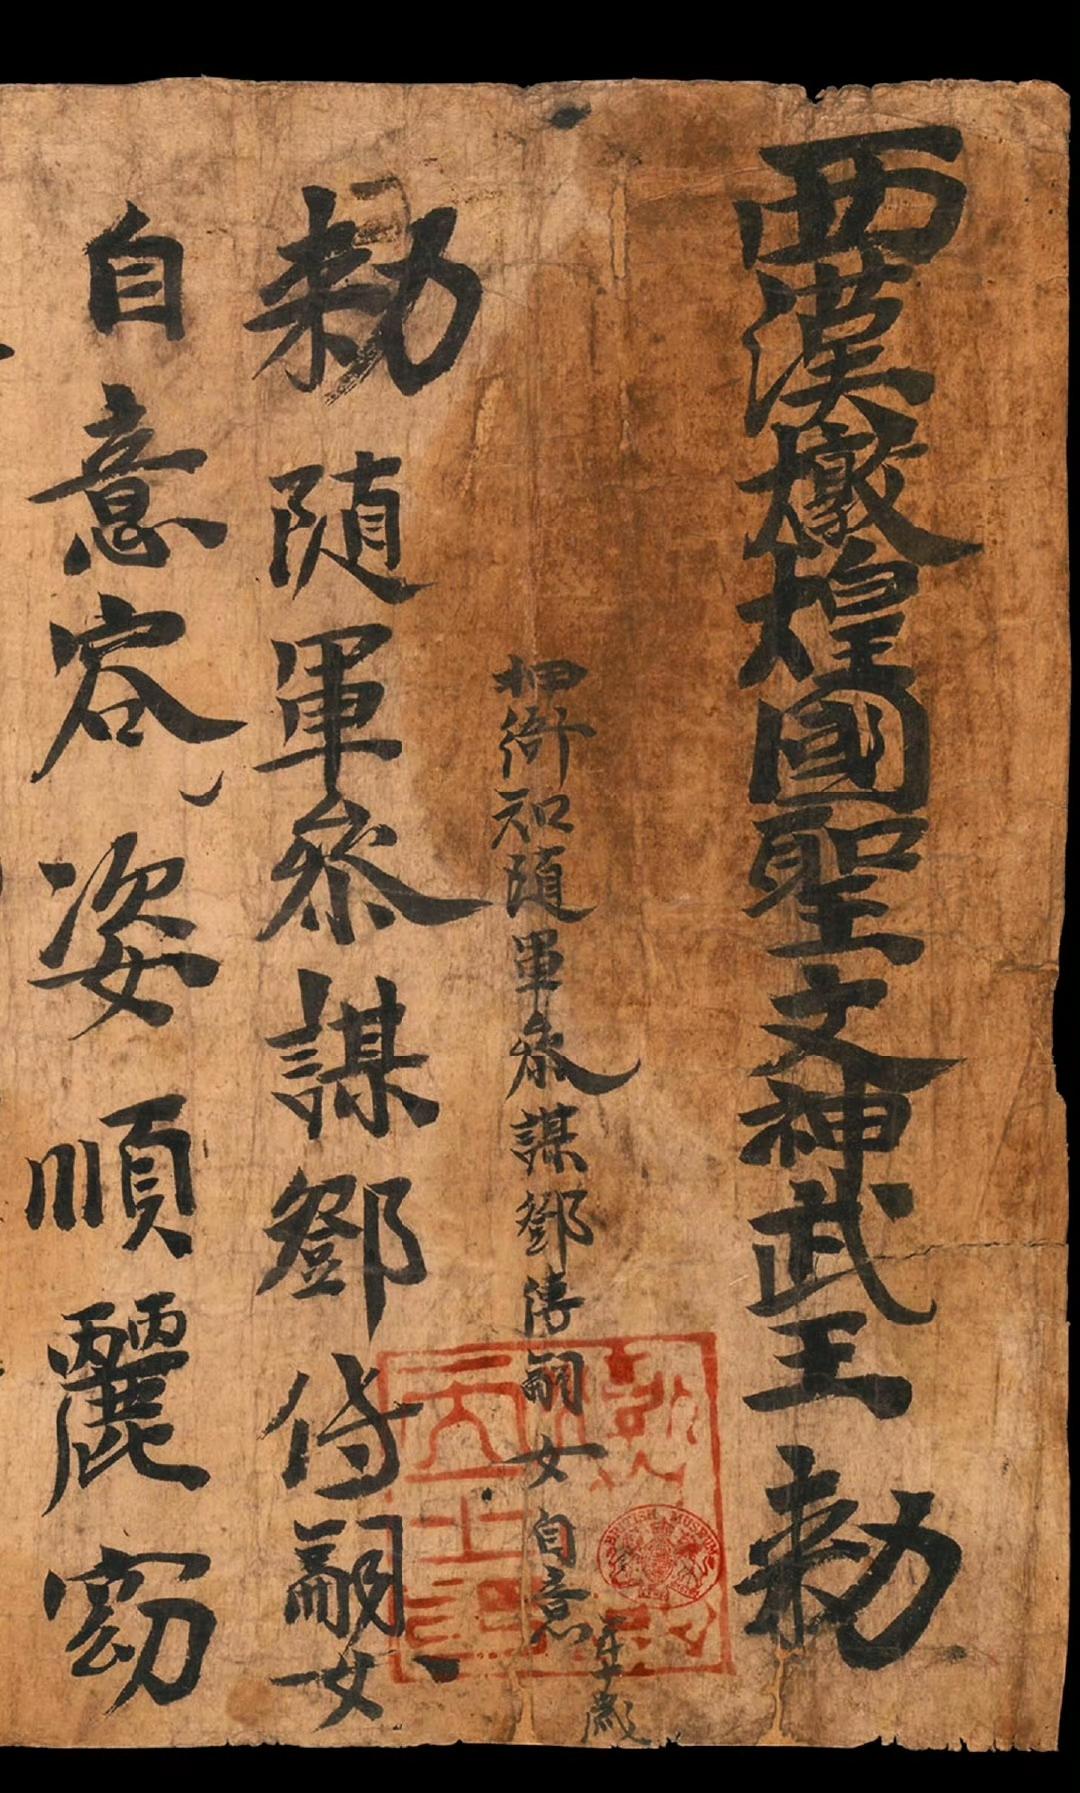 西漢燉煌國聖文神武王勅
押衙知隨軍參謀鄧傳嗣女自意年十歲
勅隨軍參謀鄧傳嗣女
自意容姿順麗窈
BRITISH MUSEUM